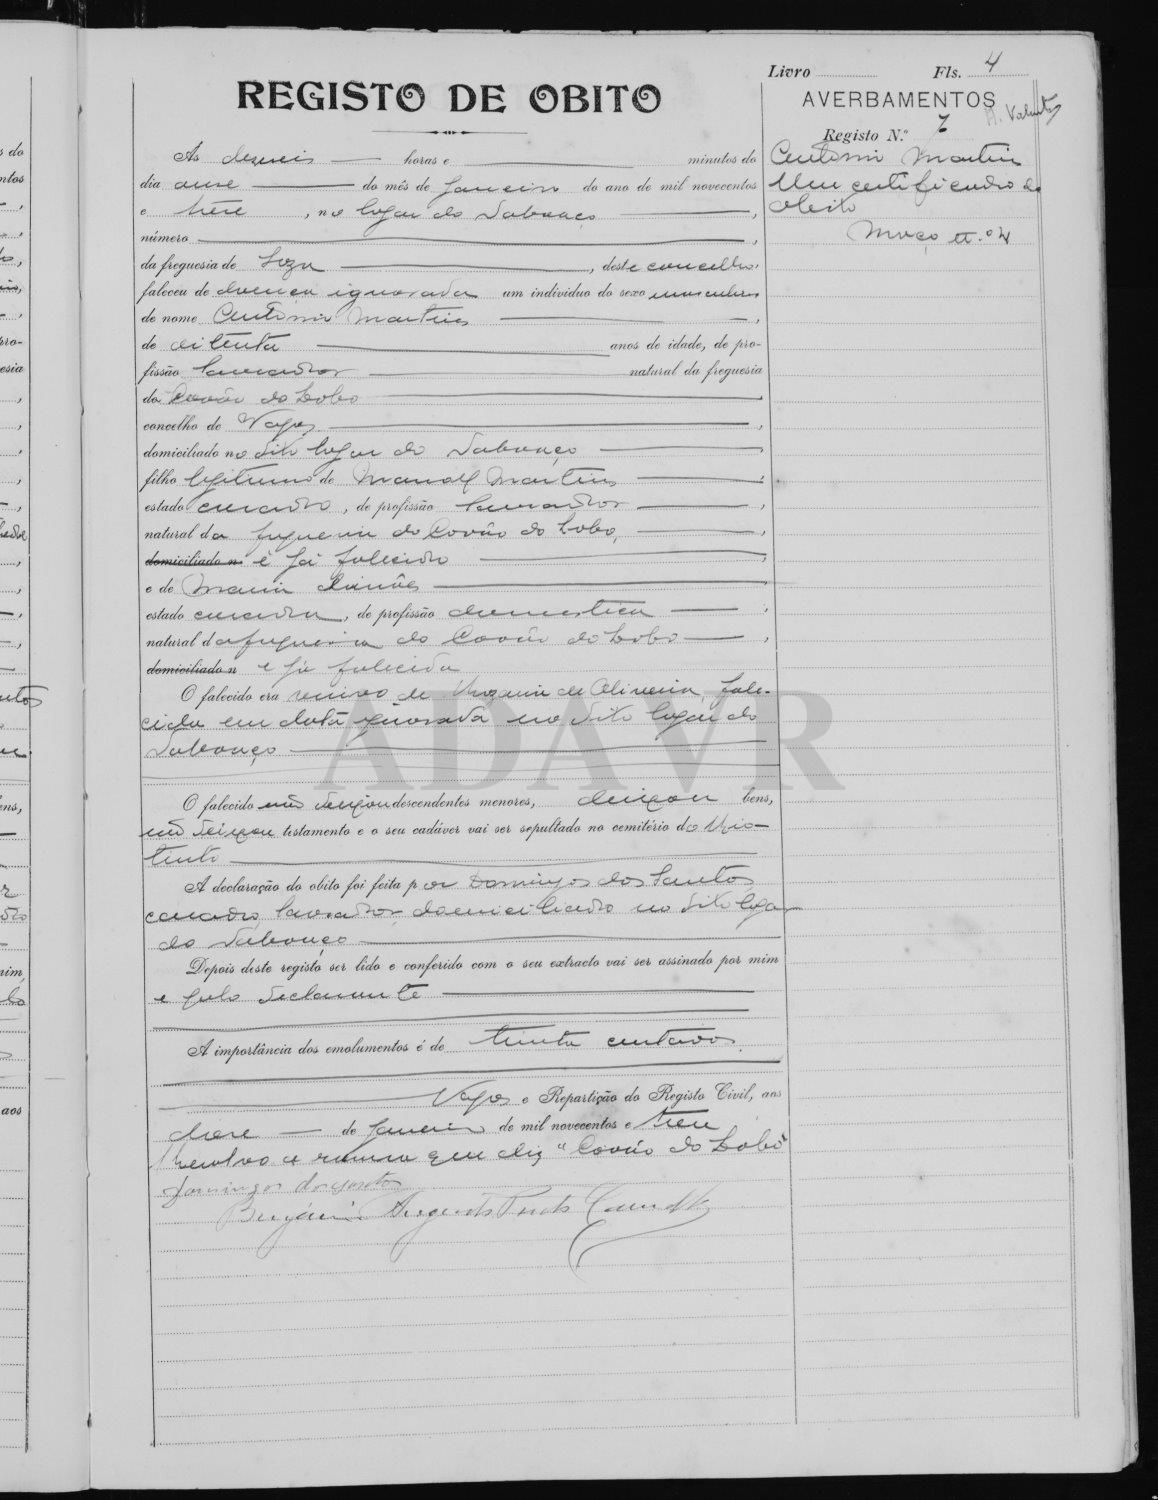 Livro Fls. 4
REGISTO DE OBITO
AVERBAMENTOS
Registo N.º 7
As dezeseis horas e minutos do
dia onze do mês de Janeiro do ano de mil novecentos
e treze, no logar do Sabouço,
número,
da freguesia de Soza, deste concelho,
faleceu de doença ignorada um individuo do sexo masculino
de nome Antonio Martins,
de oitenta anos de idade, de pro-
fissão lavrador natural da freguesia
do Covão do Lobo,
concelho de Vagos,
domiciliado no dito logar do Sabouço,
filho legitimo de Manoel Martins,
estado casado, de profissão lavrador,
natural da freguesia do Covão do Lobo,
domiciliado n é já falecido
e de Maria,
estado casada, de profissão domestica,
natural da freguesia do Covão do Lobo,
domiciliado n e já falecida
O falecido era viuvo de de Oliveira, fale-
cida em data ignorada no dito logar do
Sabouço
O falecido não deixou descendentes menores, deixou bens,
não deixou testamento e o seu cadáver vai ser sepultado no cemitério do Rio
tinto
A declaração do obito foi feita por Domingos dos Santos,
casado, lavrador, domiciliado no dito logar
do Sabouço
Depois deste registo ser lido e conferido com o seu extracto vai ser assinado por mim
e pelo declarante
A importância dos emolumentos é de trinta centavos.
Vagos e Repartição do Registo Civil, aos
doze de Janeiro de mil novecentos e treze
Resalvo a rasura que diz "Covão do Lobo"
Domingos dos Santos
Augusto
Antonio Martins
Um certificado de
obito
Maço n.º 4
ADAVR